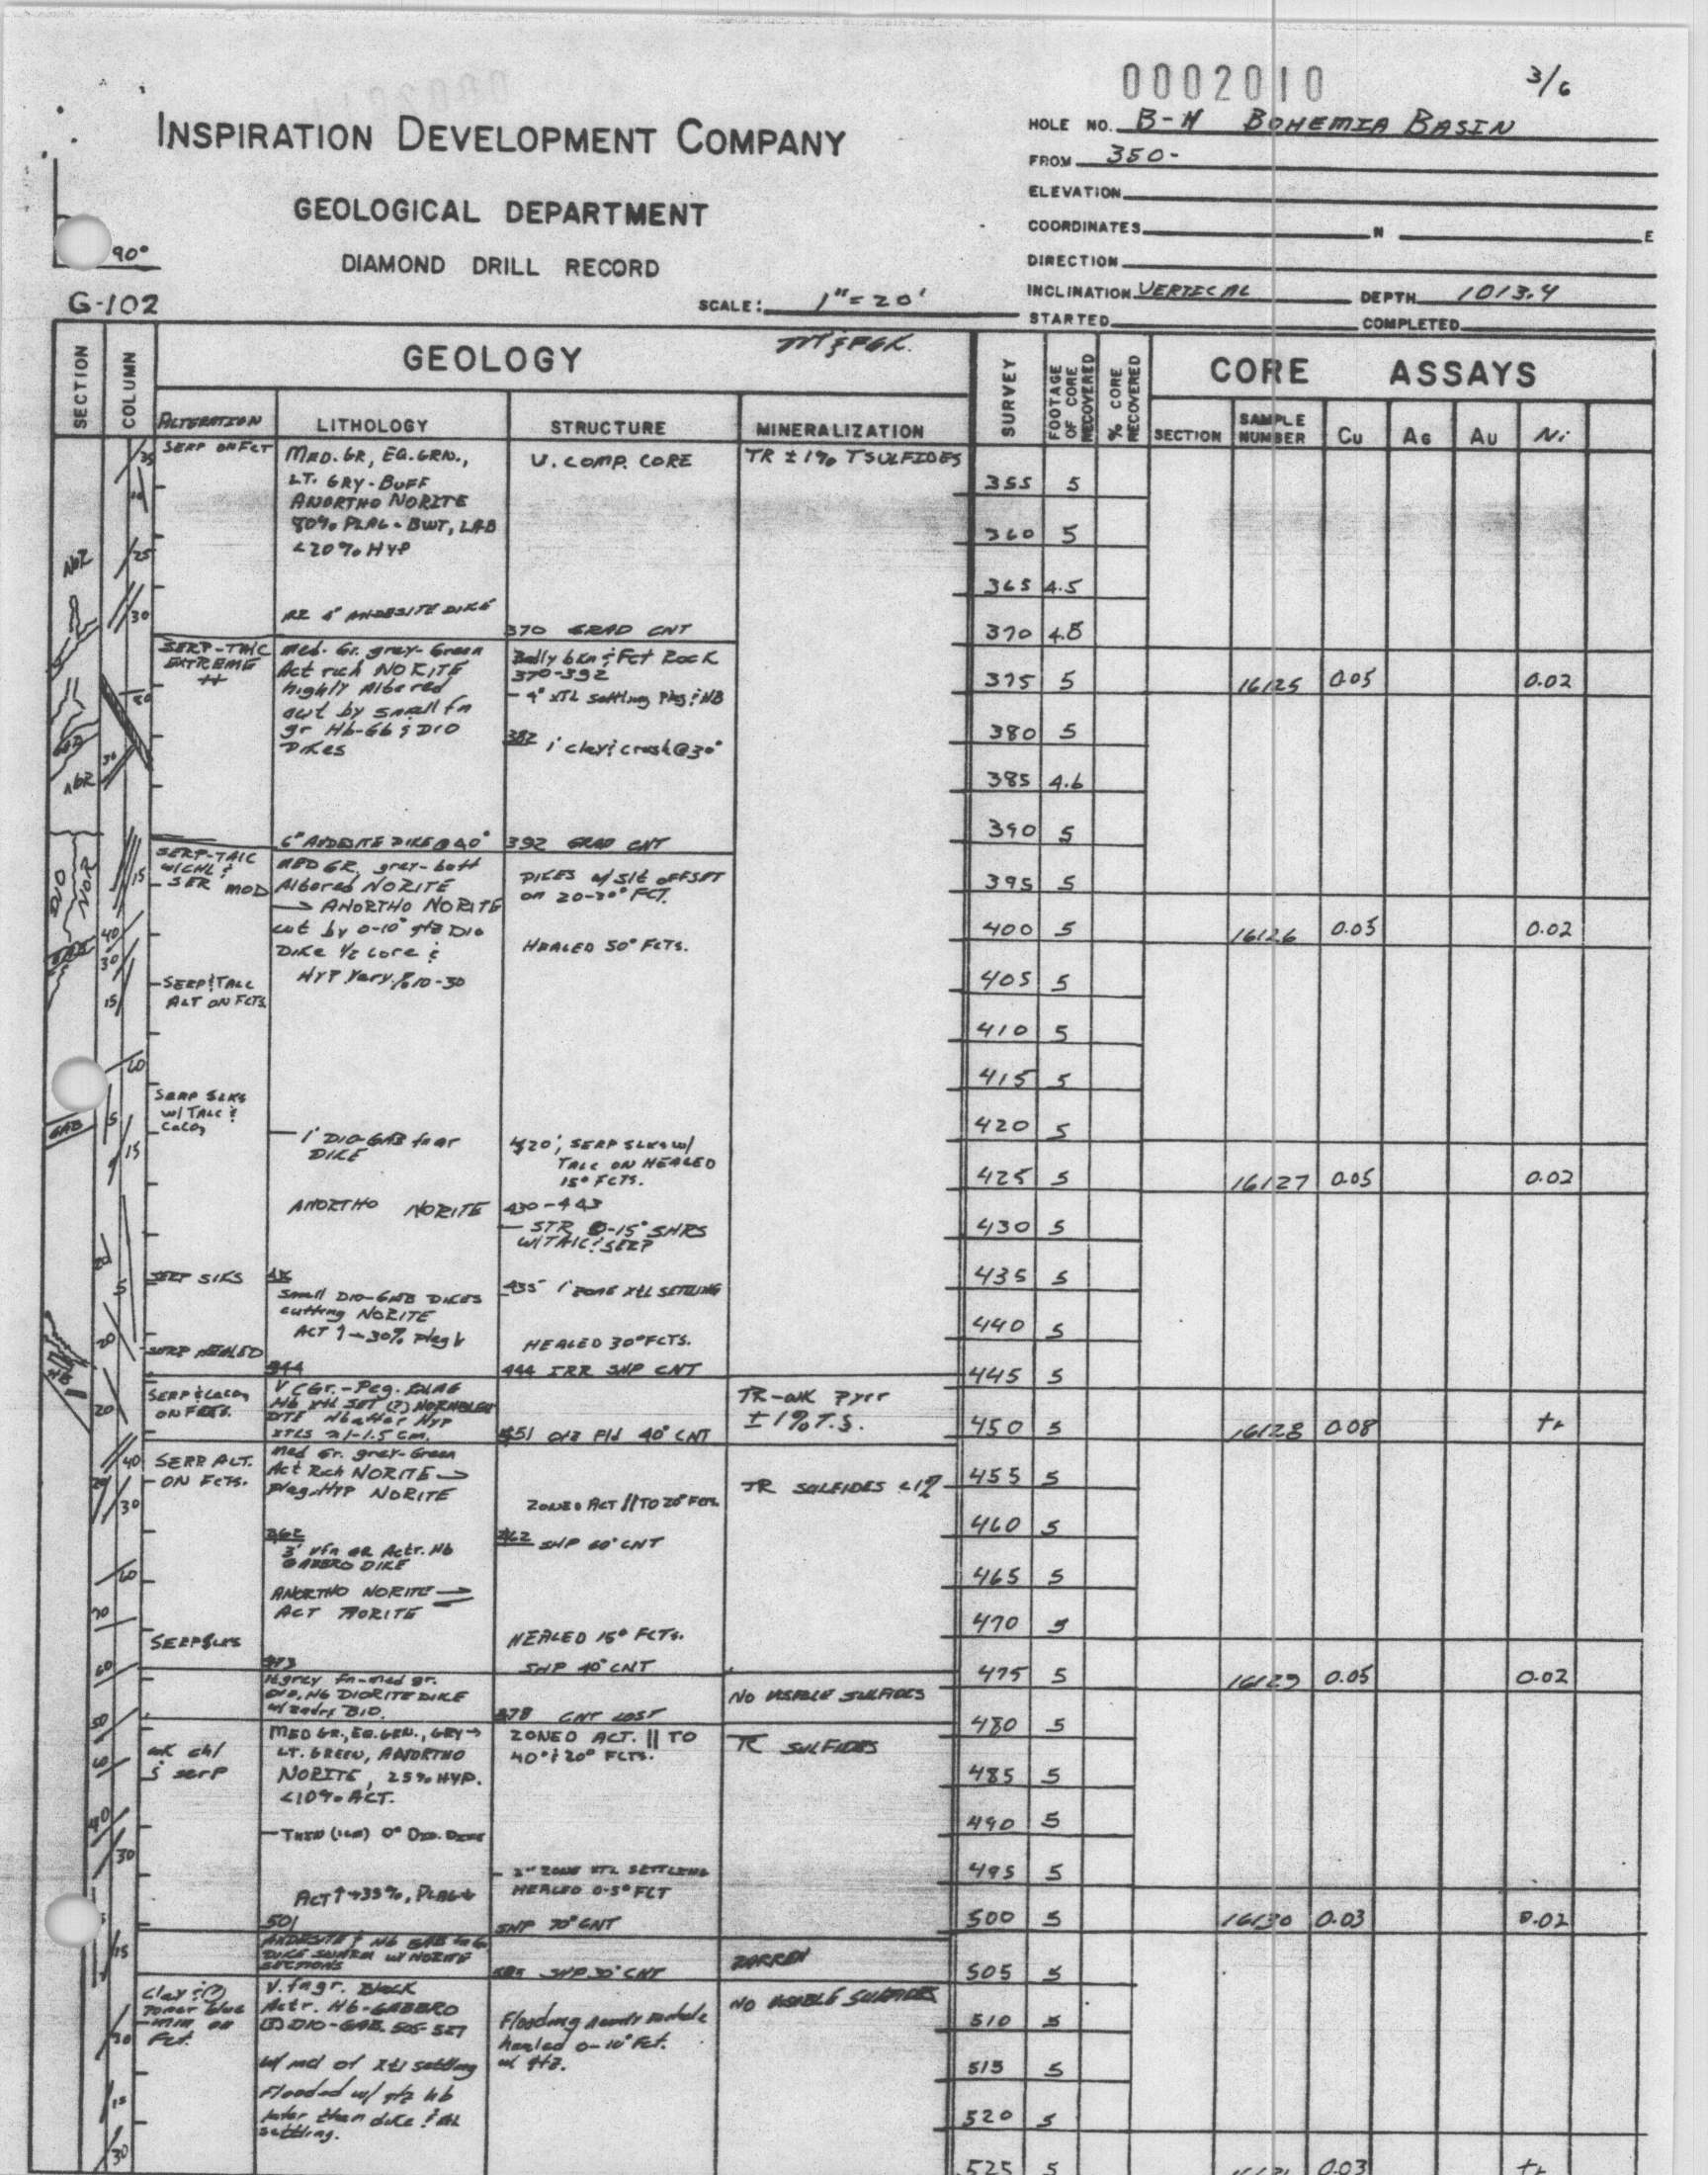 0002010
3/6
INSPIRATION DEVELOPMENT COMPANY
GEOLOGICAL DEPARTMENT
DIAMOND DRILL RECORD
90°
G-102
SCALE: 1"=20'
HOLE NO. B-H BOHEMIA BASIN
FROM 350-
ELEVATION
COORDINATES N E
DIRECTION
INCLINATION VERTICAL DEPTH 1013.4
STARTED COMPLETED
SECTION
COLUMN
GEOLOGY
SURVEY
FOOTAGE OF CORE RECOVERED
% CORE RECOVERED
CORE ASSAYS
ALTERATION LITHOLOGY STRUCTURE MINERALIZATION
SECTION SAMPLE NUMBER Cu AG AU Ni
SERP ON FCT
MED. GR, EQ. GRN.,
LT. GRY-BUFF
ANORTHO NORITE
80% PLAG-BWT, LAB
<20% HYP
U. COMP. CORE
TR ± 1% T SULFIDES
ANDESITE DIKE
370 GRAD CNT
SERP-TALC
EXTREME
Med. Gr. gray-Green
Act rich NORITE
highly Altered
cut by small fn
gr Hb-Gb & DIO
Dikes
Badly bkn & Fct Rock
370-392
382 1' clay & crush @ 30°
6" ANDESITE DIKE @ 40°
392 GRAD CNT
SERP-TALC
W/ CHL &
SER MOD
MED GR, grey-buff
Altered NORITE
→ ANORTHO NORITE
cut by 0-10° qtz DIO
Dike 1/2 core &
HYP Vary % 10-30
DIKES w/ slt OFFSET
on 20-30° FCT.
HEALED 50° FCTS.
SERP & TALC
ALT ON FCTS
SERP SLKS
W/ TALC &
CaCO3
1' DIO-GAB fn gr
DIKE
420', SERP SLKS w/
TALC ON HEALED
15° FCTS.
ANORTHO NORITE
430-443
STR 0-15° SHRS
W/ TALC & SERP
SERP SLKS
Small DIO-GAB DIKES
cutting NORITE
ACT ↑→30% plag ↓
435 1' ZONE XTL SETTLING
HEALED 30° FCTS.
SERP HEALED
444
444 IRR SHP CNT
SERP & CaCO3
ON FCTS.
451 40° CNT
TR-WK Pyrr
± 1% T.S.
SERP ALT.
ON FCTS.
Med Gr. gray-Green
Act Rich NORITE →
plag-HYP NORITE
ZONED ACT // TO 20° FCTS.
TR SULFIDES <1%
462
3' vfn GR Actr. Hb
GABBRO DIKE
462 SHP 60° CNT
ANORTHO NORITE →
ACT NORITE
SERP SLKS
HEALED 15° FCTS.
473
SHP 40° CNT
DIO, Hb DIORITE DIKE
478 CNT LOST
NO VISIBLE SULFIDES
wk chl
& serp
MED GR., EQ. GRN., GRY →
LT. GREEN, ANORTHO
NORITE, 25% HYP.
<10% ACT.
ZONED ACT. || TO
40° & 20° FCTS.
TR SULFIDES
THIN (1CM) 0° DIO. DIKE
2" ZONE XTL SETTLING
HEALED 0-5° FCT
ACT↑→35%, PLAG↓
501
SHP 70° CNT
DIKE SWARM W/ NORITE
SECTIONS
505 SHP 30° CNT
BARREN
V. fn gr. Black
Actr. Hb-GABBRO
DIO-GAB. 505-527
w/ md of xtl settling
Flooded w/ qtz Hb
later than dike & xtl
settling.
healed 0-10° Fct.
w/ qtz.
NO VISIBLE SULFIDES
355 5
360 5
365 4.5
370 4.8
375 5 16125 0.05 0.02
380 5
385 4.6
390 5
395 5
400 5 16126 0.05 0.02
405 5
410 5
415 5
420 5
425 5 16127 0.05 0.02
430 5
435 5
440 5
445 5
450 5 16128 0.08 tr
455 5
460 5
465 5
470 5
475 5 16129 0.05 0.02
480 5
485 5
490 5
495 5
500 5 16130 0.03 0.02
505 5
510 5
515 5
520 5
525 5 0.03 tr